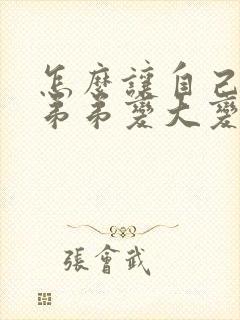 怎麼讓自己
弟弟變大變
張會武